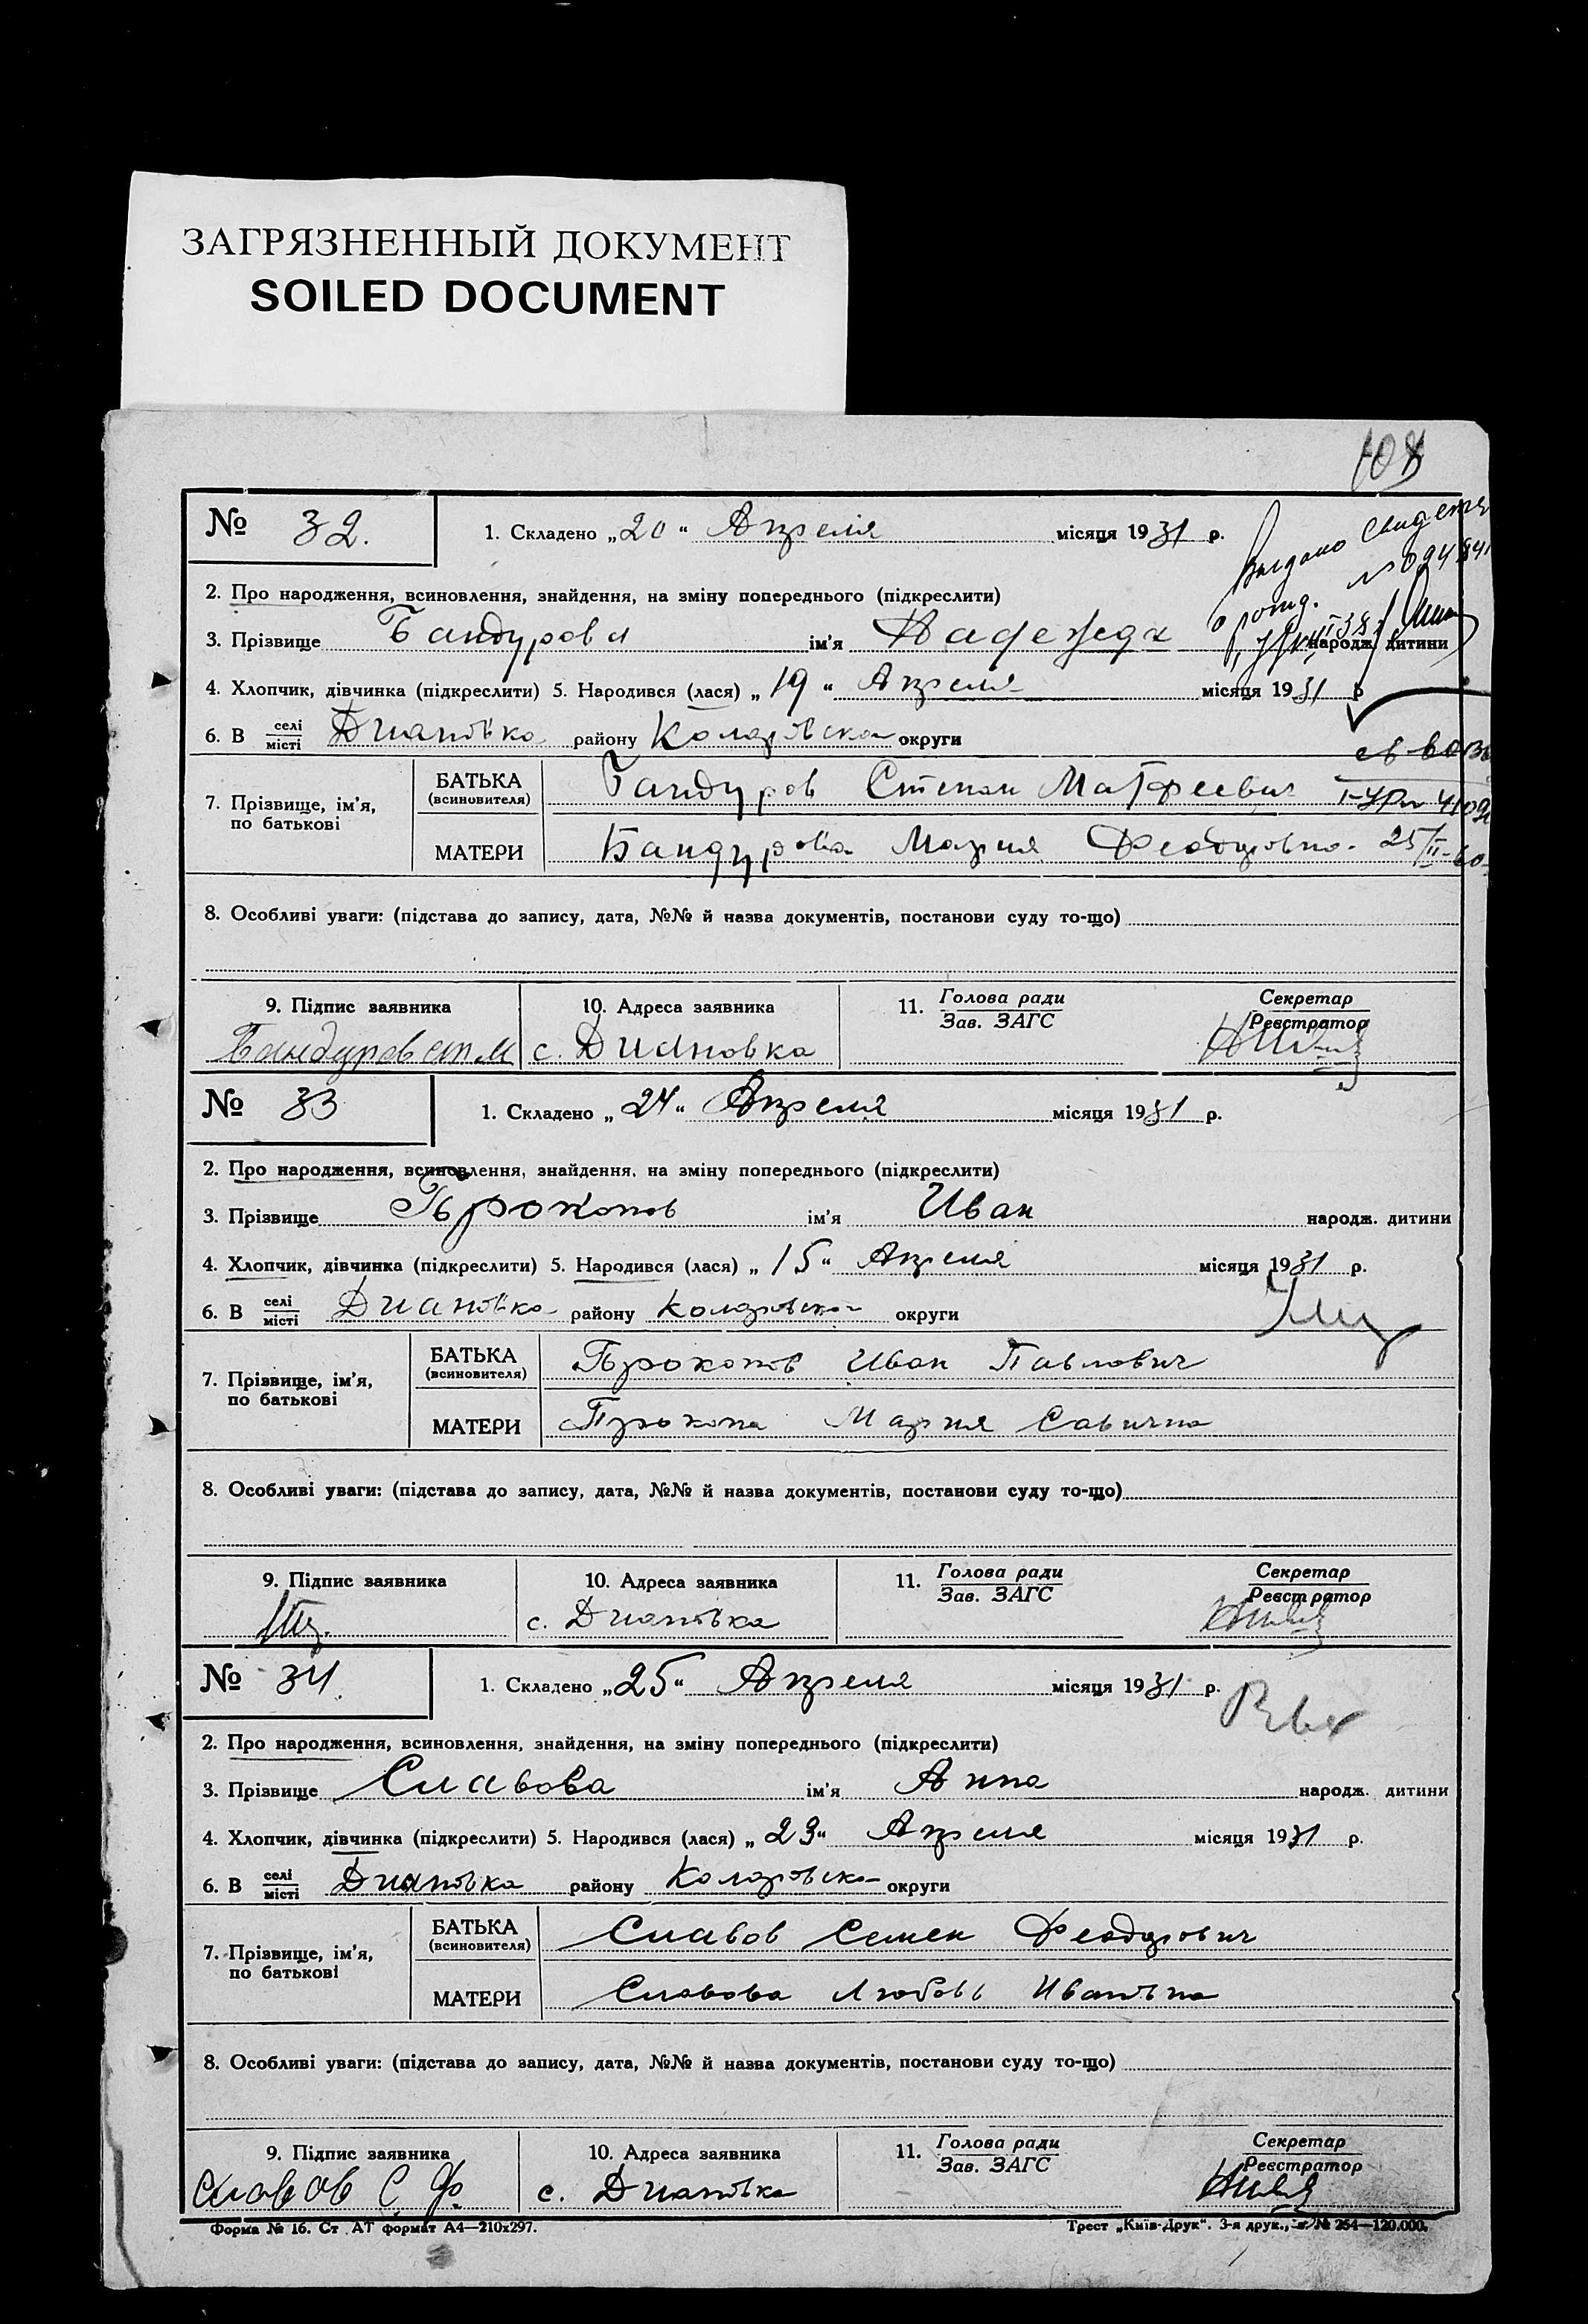 ЗАГРЯЗНЕННЫЙ ДОКУМЕНТ
SOILED DOCUMENT
№ 32.
1. Складено „20“ Апреля місяця 1931 р.
Выдано свидет
о рожд.
2. Про народження, всиновлення, знайдення, на зміну попереднього (підкреслити)
3. Прізвище Бандурова ім'я Надежда народж. дитини
4. Хлопчик, дівчинка (підкреслити) 5. Народився (лася) „19“ Апреля місяця 1931 р
6. В селі місті Диановка району Коларовско округи
7. Прізвище, ім'я, по батькові
БАТЬКА (всиновителя) Бандуров Степан Матфеевич
МАТЕРИ Бандурова Мария Феодоровна. 25/II-60
8. Особливі уваги: (підстава до запису, дата, №№ й назва документів, постанови суду то-що)
9. Підпис заявника
10. Адреса заявника
11. Голова ради Зав. ЗАГС
Секретар Реєстратор
Бандуров ст м с. Диановка
№ 33
1. Складено „24“ Апреля місяця 1931 р.
2. Про народження, всиновлення, знайдення, на зміну попереднього (підкреслити)
3. Прізвище Прокопов ім'я Иван народж. дитини
4. Хлопчик, дівчинка (підкреслити) 5. Народився (лася) „15“ Апреля місяця 1931 р.
6. В селі місті Диановка району Коларовско округи
7. Прізвище, ім'я, по батькові
БАТЬКА (всиновителя) Прокопов Иван Павлович
МАТЕРИ Мария Савична
8. Особливі уваги: (підстава до запису, дата, №№ й назва документів, постанови суду то-що)
9. Підпис заявника
10. Адреса заявника
11. Голова ради Зав. ЗАГС
Секретар Реєстратор
с. Диановка
№ 34.
1. Складено „25“ Апреля місяця 1931 р.
2. Про народження, всиновлення, знайдення, на зміну попереднього (підкреслити)
3. Прізвище Славова ім'я Анна народж. дитини
4. Хлопчик, дівчинка (підкреслити) 5. Народився (лася) „23“ Апреля місяця 1931 р.
6. В селі місті Диановка району Коларовско округи
7. Прізвище, ім'я, по батькові
БАТЬКА (всиновителя) Славов Семен Феодорович
МАТЕРИ Славова Любовь Ивановна
8. Особливі уваги: (підстава до запису, дата, №№ й назва документів, постанови суду то-що)
9. Підпис заявника
10. Адреса заявника
11. Голова ради Зав. ЗАГС
Секретар Реєстратор
Славов С Ф. с. Диановка
Форма № 16. Ст АТ формат А4—210х297.
Трест „Київ-Друк“. 3-я друк., з. № 254—120.000.